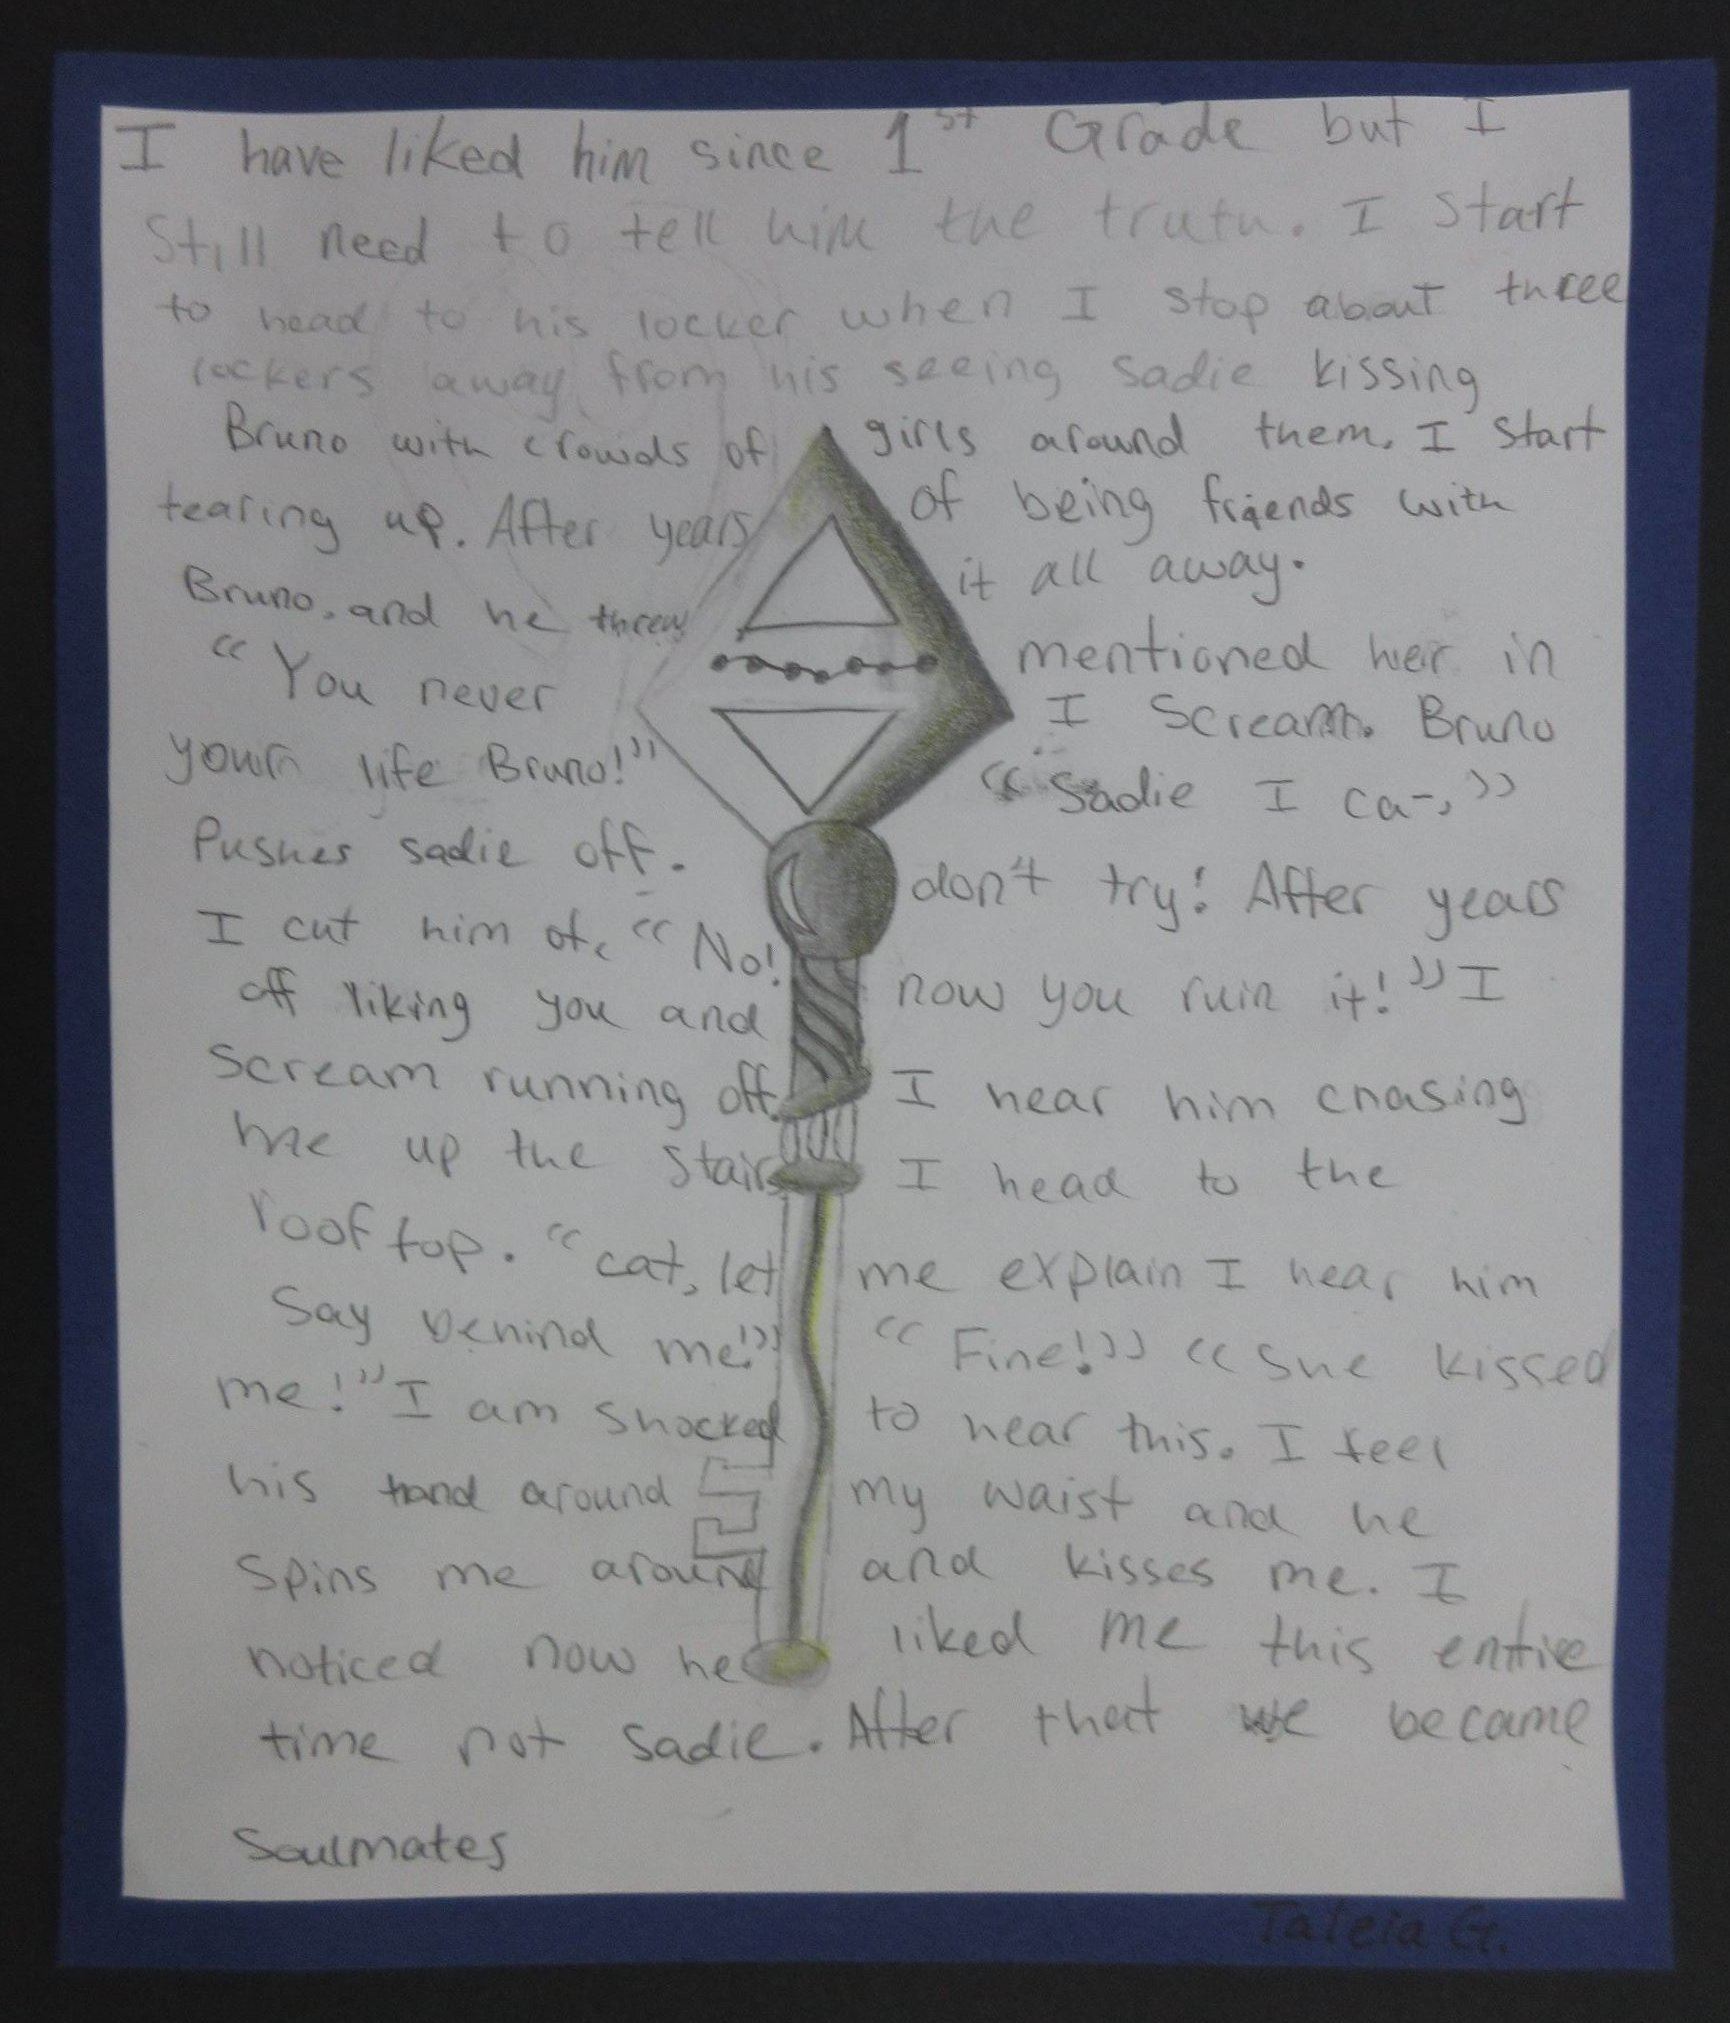 I have liked him since 1st Grade but I
Still need to tell him the truth. I start
to head to his locker when I stop about three
lockers away from his seeing sadie kissing
Bruno with crowds of girls around them. I start
tearing up. After years of being friends with
Bruno, and he threw it all away.
"You never mentioned her in
your life Bruno!" I Scream. Bruno
Pushes sadie off. "Sadie I ca-,"
I cut him of, "No! don't try! After years
off liking you and now you ruin it!" I
Scream running off. I hear him chasing
me up the stairs I head to the
roof top. "cat, let me explain I hear him
Say behind me!" "Fine!" "She kissed
me!" I am shocked to hear this. I feel
his hand around my waist and he
Spins me around and kisses me. I
noticed now he liked me this entire
time not sadie. After that we became
Soulmates
Taleia G.